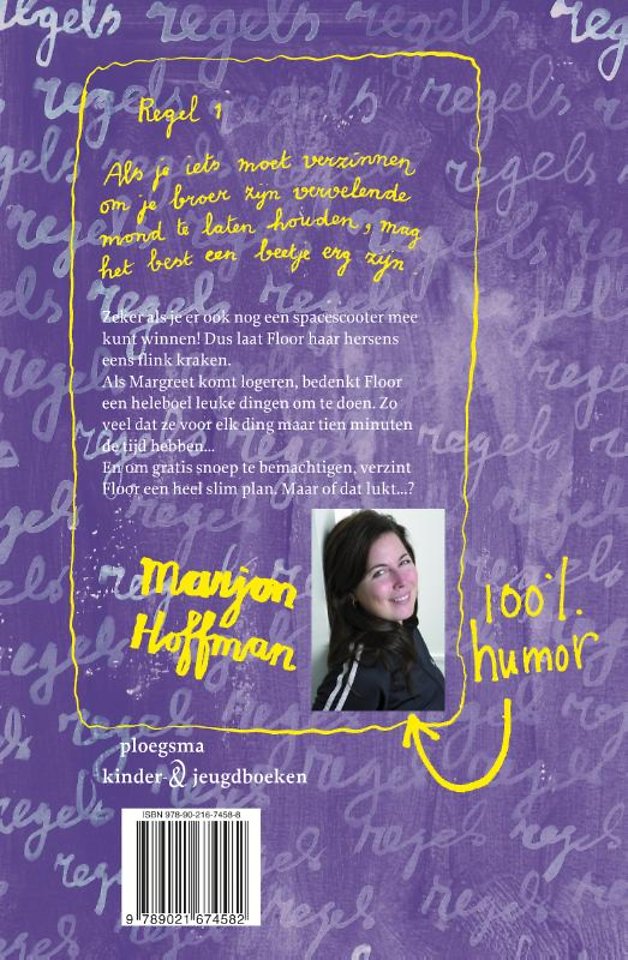 Regel 1
Als je iets moet verzinnen
om je broer zijn vervelende
mond te laten houden, mag
het best een beetje erg zijn.
Zeker als je er ook nog een spacescooter mee
kunt winnen! Dus laat Floor haar hersens
eens flink kraken.
Als Margreet komt logeren, bedenkt Floor
een heleboel leuke dingen om te doen. Zo
veel dat ze voor elk ding maar tien minuten
de tijd hebben...
En om gratis snoep te bemachtigen, verzint
Floor een heel slim plan. Maar of dat lukt...?
Marjon
Hoffman
100%
humor
ploegsma
kinder- & jeugdboeken
ISBN 978-90-216-7458-8
9 789021 674582